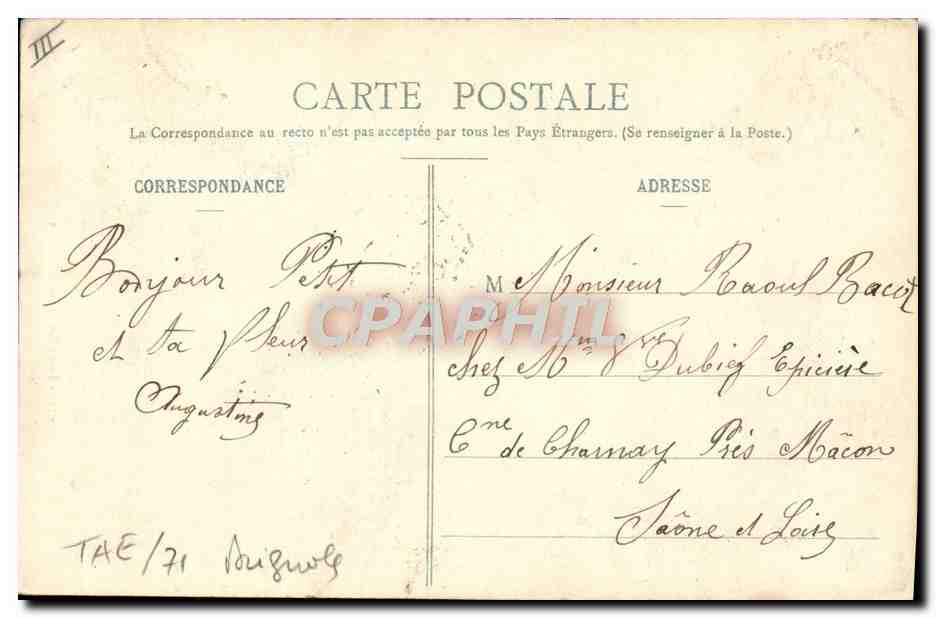 III
CARTE POSTALE
La Correspondance au recto n'est pas acceptée par tous les Pays Étrangers. (Se renseigner à la Poste.)
CORRESPONDANCE
Bonjour Petit
et ta fleur
Augustine
TAE/71
ADRESSE
M Monsieur Raoul Bacot
chez Mme Vve Dubief Epicière
Cne de Charnay Près Mâcon
Saône et Loire
CPAPHIL